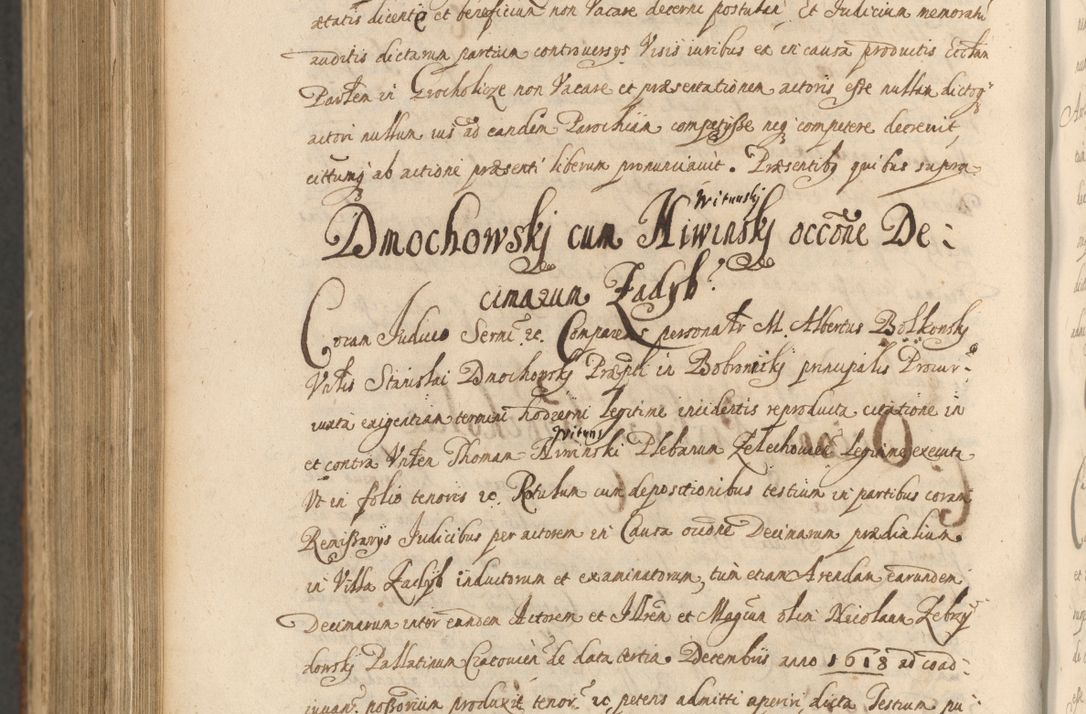 ætatis dicente et beneficium non Vacare decerni postulan Et Iudicium memorati
auditis dictarum partium controversys Visis iuribus ex in causa productis Eccłam
Parłem in Grocholicze non Vacare et præsentationem actoris esse nullam dictoq
actori nullum ius ad eandem Parochiam competysse neq competere decrevit,
cittumq ab actione præsenti liberum pronunciavit. Præsentibq quibus supra
Witunskj
Dmochowskj cum Hiwinskj occone De:
cimarum Zadyb?
Coram Iudico Sermi: zc. Comparens personalr M. Albertus Bolkonskj
Vnlis Stanislai Dmochowskj Præpti in Bobronikj principalis Procur:
iuxta exigentiam termini hodierni legitime incidentis reproducta citatione in
Wituns
et contra Vnlem Thomam Hiwinski Plebanum Zelechoviens legitime executa
Vt in folio tenoris zc. Rotulum cum depositionibus testium in partibus coram
Remissarys Iudicibus per actorem in Causa occone Decimarum prædialium
in Villa Zadyb inductorum et examinatorum, tum etiam Arendam earundem
Decimarum inter eundem Actorem et Illrem et Magcum olim Nicolaum Zebrzy
dowskj Pallatinum Cracovien de data tertia Decembris anno 1618 ad coad
iuvan. possorium produxit tenor. zc petens admitti aperiri dicta Testium pu